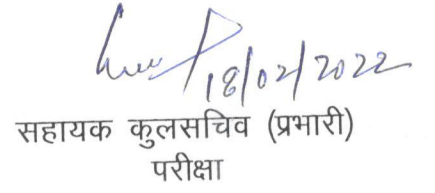 18/02/2022
सहायक कुलसचिव (प्रभारी)
परीक्षा